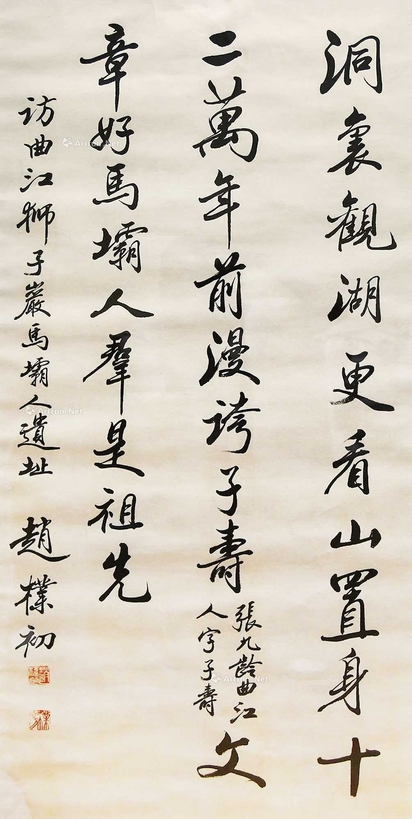 洞裏觀湖更看山置身十
二萬年前漫誇子壽張九齡曲江人字子壽文
章好馬壩人羣是祖先
访曲江狮子巖馬壩人遺址 趙樸初